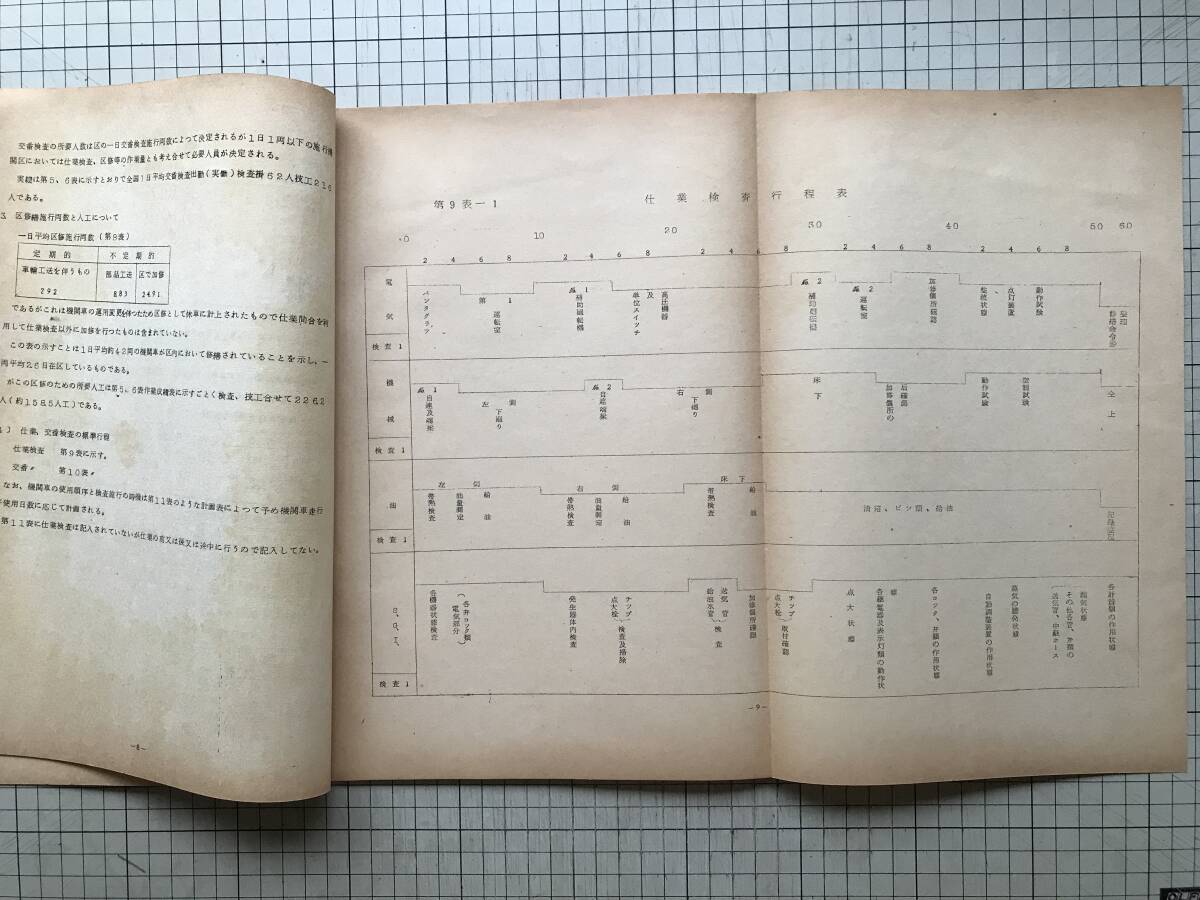 交番検査の所要人数は区の一日交番検査施行両数によって決定されるが1日1両以下の施行機
関区においては仕業検査、区修等の作業量とも考え合せて必要人員が決定される。
実績は第5、6表に示すとおりで全国1日平均交番検査出勤(実働)検査掛62人技工216
人である。
3. 区修繕施行両数と人工について
一日平均区修施行両数(第8表)
定期的 不定期的
車輪工送を伴うもの 部品工送 区で加修
292 883 2491
であるがこれは機関車の運用変更を伴つため区修として休車に計上されたもので仕業間合を利
用して仕業検査以外に加修を行つたものは含まれていない。
この表の示すことは1日平均約42両の機関車が区内において修繕されていることを示し、一
両平均26日在区しているものである。
がこの区修のための所要人工は第5、6表作業成績表に示すごとく検査、技工合せて2262
人(約1585人工)である。
) 仕業、交番検査の標準行程
仕業検査 第9表に示す。
交番〃 第10表〃
なお、機関車の使用順序と検査施行の時機は第11表のような計画表によって予め機関車走行
使用日数に応じて計画される。
第11表に仕業検査は記入されていないが仕業の前又は後又は途中に行うので記入してない。
—8—
第9表—1 仕業検査行程表
0 10 20 30 40 50 60
2 4 6 8 2 4 6 8 2 4 6 8 2 4 6 8 2 4 6 8
電気
検査1
パンタグラフ
第1
運転室
№1
補助回転機
及
単位スイッチ
高圧機器
№2
補助回転機
№2
運転室
加修個所確認
整流状態
点灯装置
動作試験
機械
検査1
№1
自連及端梁
左側
下廻り
№2
自連端梁
右側
下廻り
床下
加修個所の
后確認
動作試験
空制試験
仝上
油
検査1
左側
帯熱検査
油量測定
給油
右側
帯熱検査
油量測定
給油
床下
帯熱検査
給油
清沼、ピン類、給油
S.G.I.
検査1
各機器状態検査
(各弁コック類
電気部分)
発生器体内検査
チップ
点火栓
検査及掃除
送気管
給油水管
検査
加修個所確認
チップ
点火栓
取付確認
点火状態
各継電器及表示灯類の動作状
態
各コック、弁類の作用状態
自動調整装置の作用状態
蒸気の騰発状態
送気管、中継ホース
その他各管、弁類の
漏気状態
各計器類の作用状態
—9—